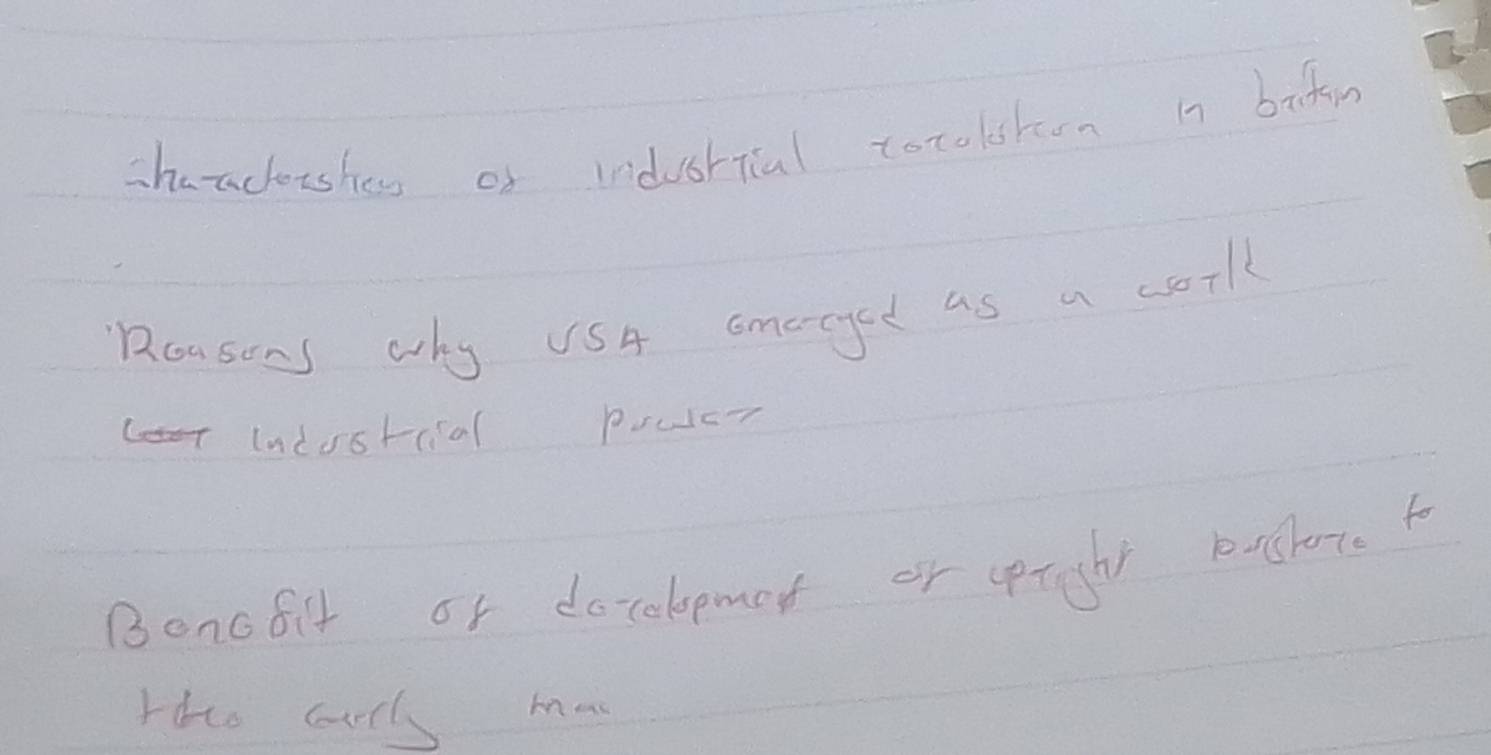 characteristics of industrial revolution in britain
Reasons why USA emerged as a world
industrial power
Benefit of development of upright posture to
the early man